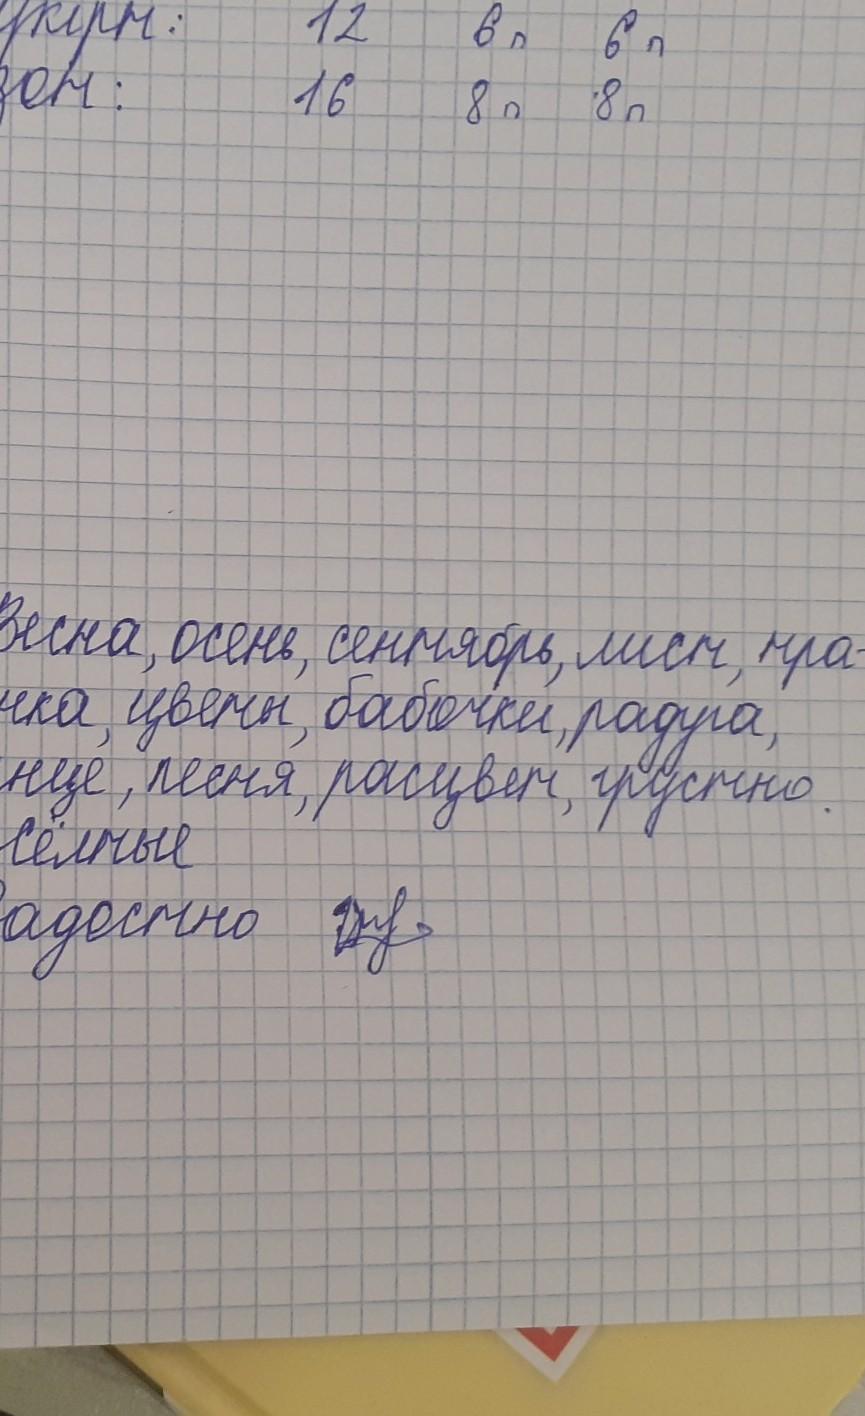 укрт: 12 6п 6п
зон: 16 8п 8п
Весна, осень, сентябрь, лист, тра-
чка, цветы, бабочки, радуга,
нце, песня, расцвет, грустно.
сёлтые
адостно